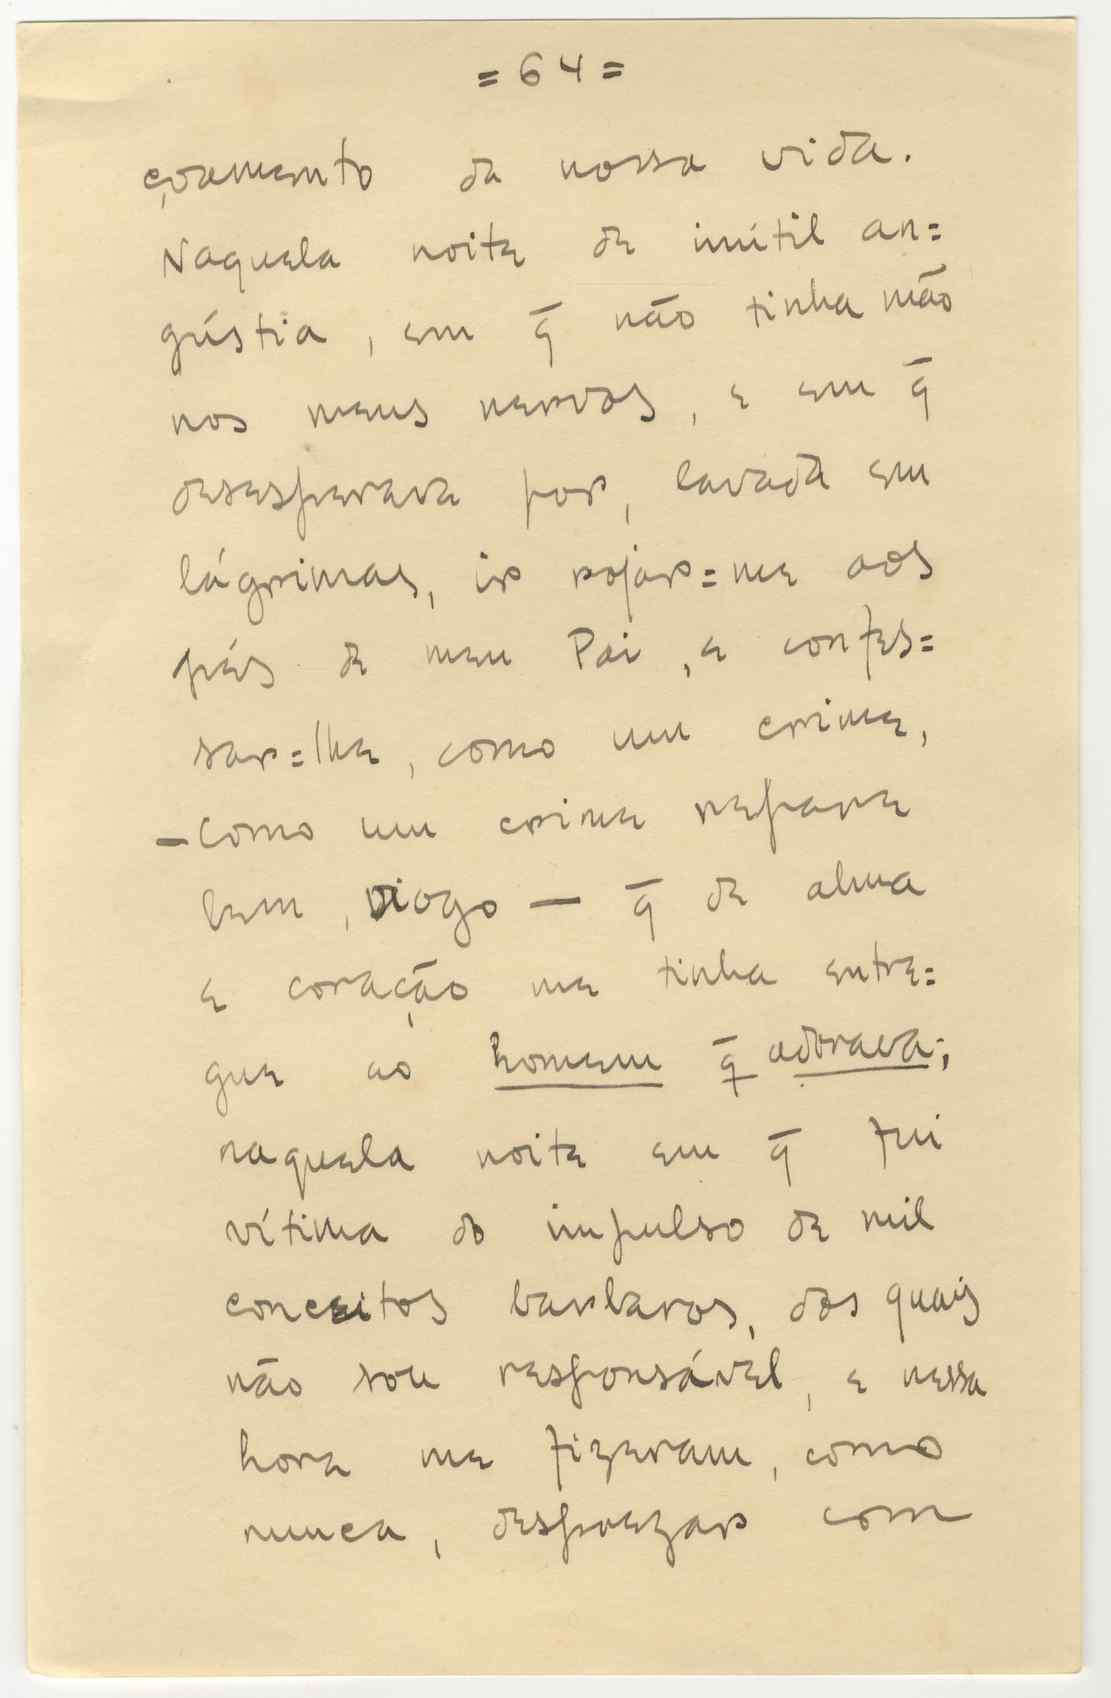 = 64 =
çoamento da nossa vida.
Naquela noite de inútil an=
gústia, em q̄ não tinha mão
nos meus nervos, e em q̄
desesperava por, lavada em
lágrimas, ir rojar=me aos
pés de meu Pai, e confes=
sar=lhe, como um crime,
— como um crime repare
bem, Diogo — q̄ de alma
e coração me tinha entre=
gue ao homem q̄ adorava;
naquela noite em q̄ fui
vítima do impulso de mil
conceitos barbaros, dos quais
não sou responsável, e nessa
hora me fizeram, como
nunca, desprezar com